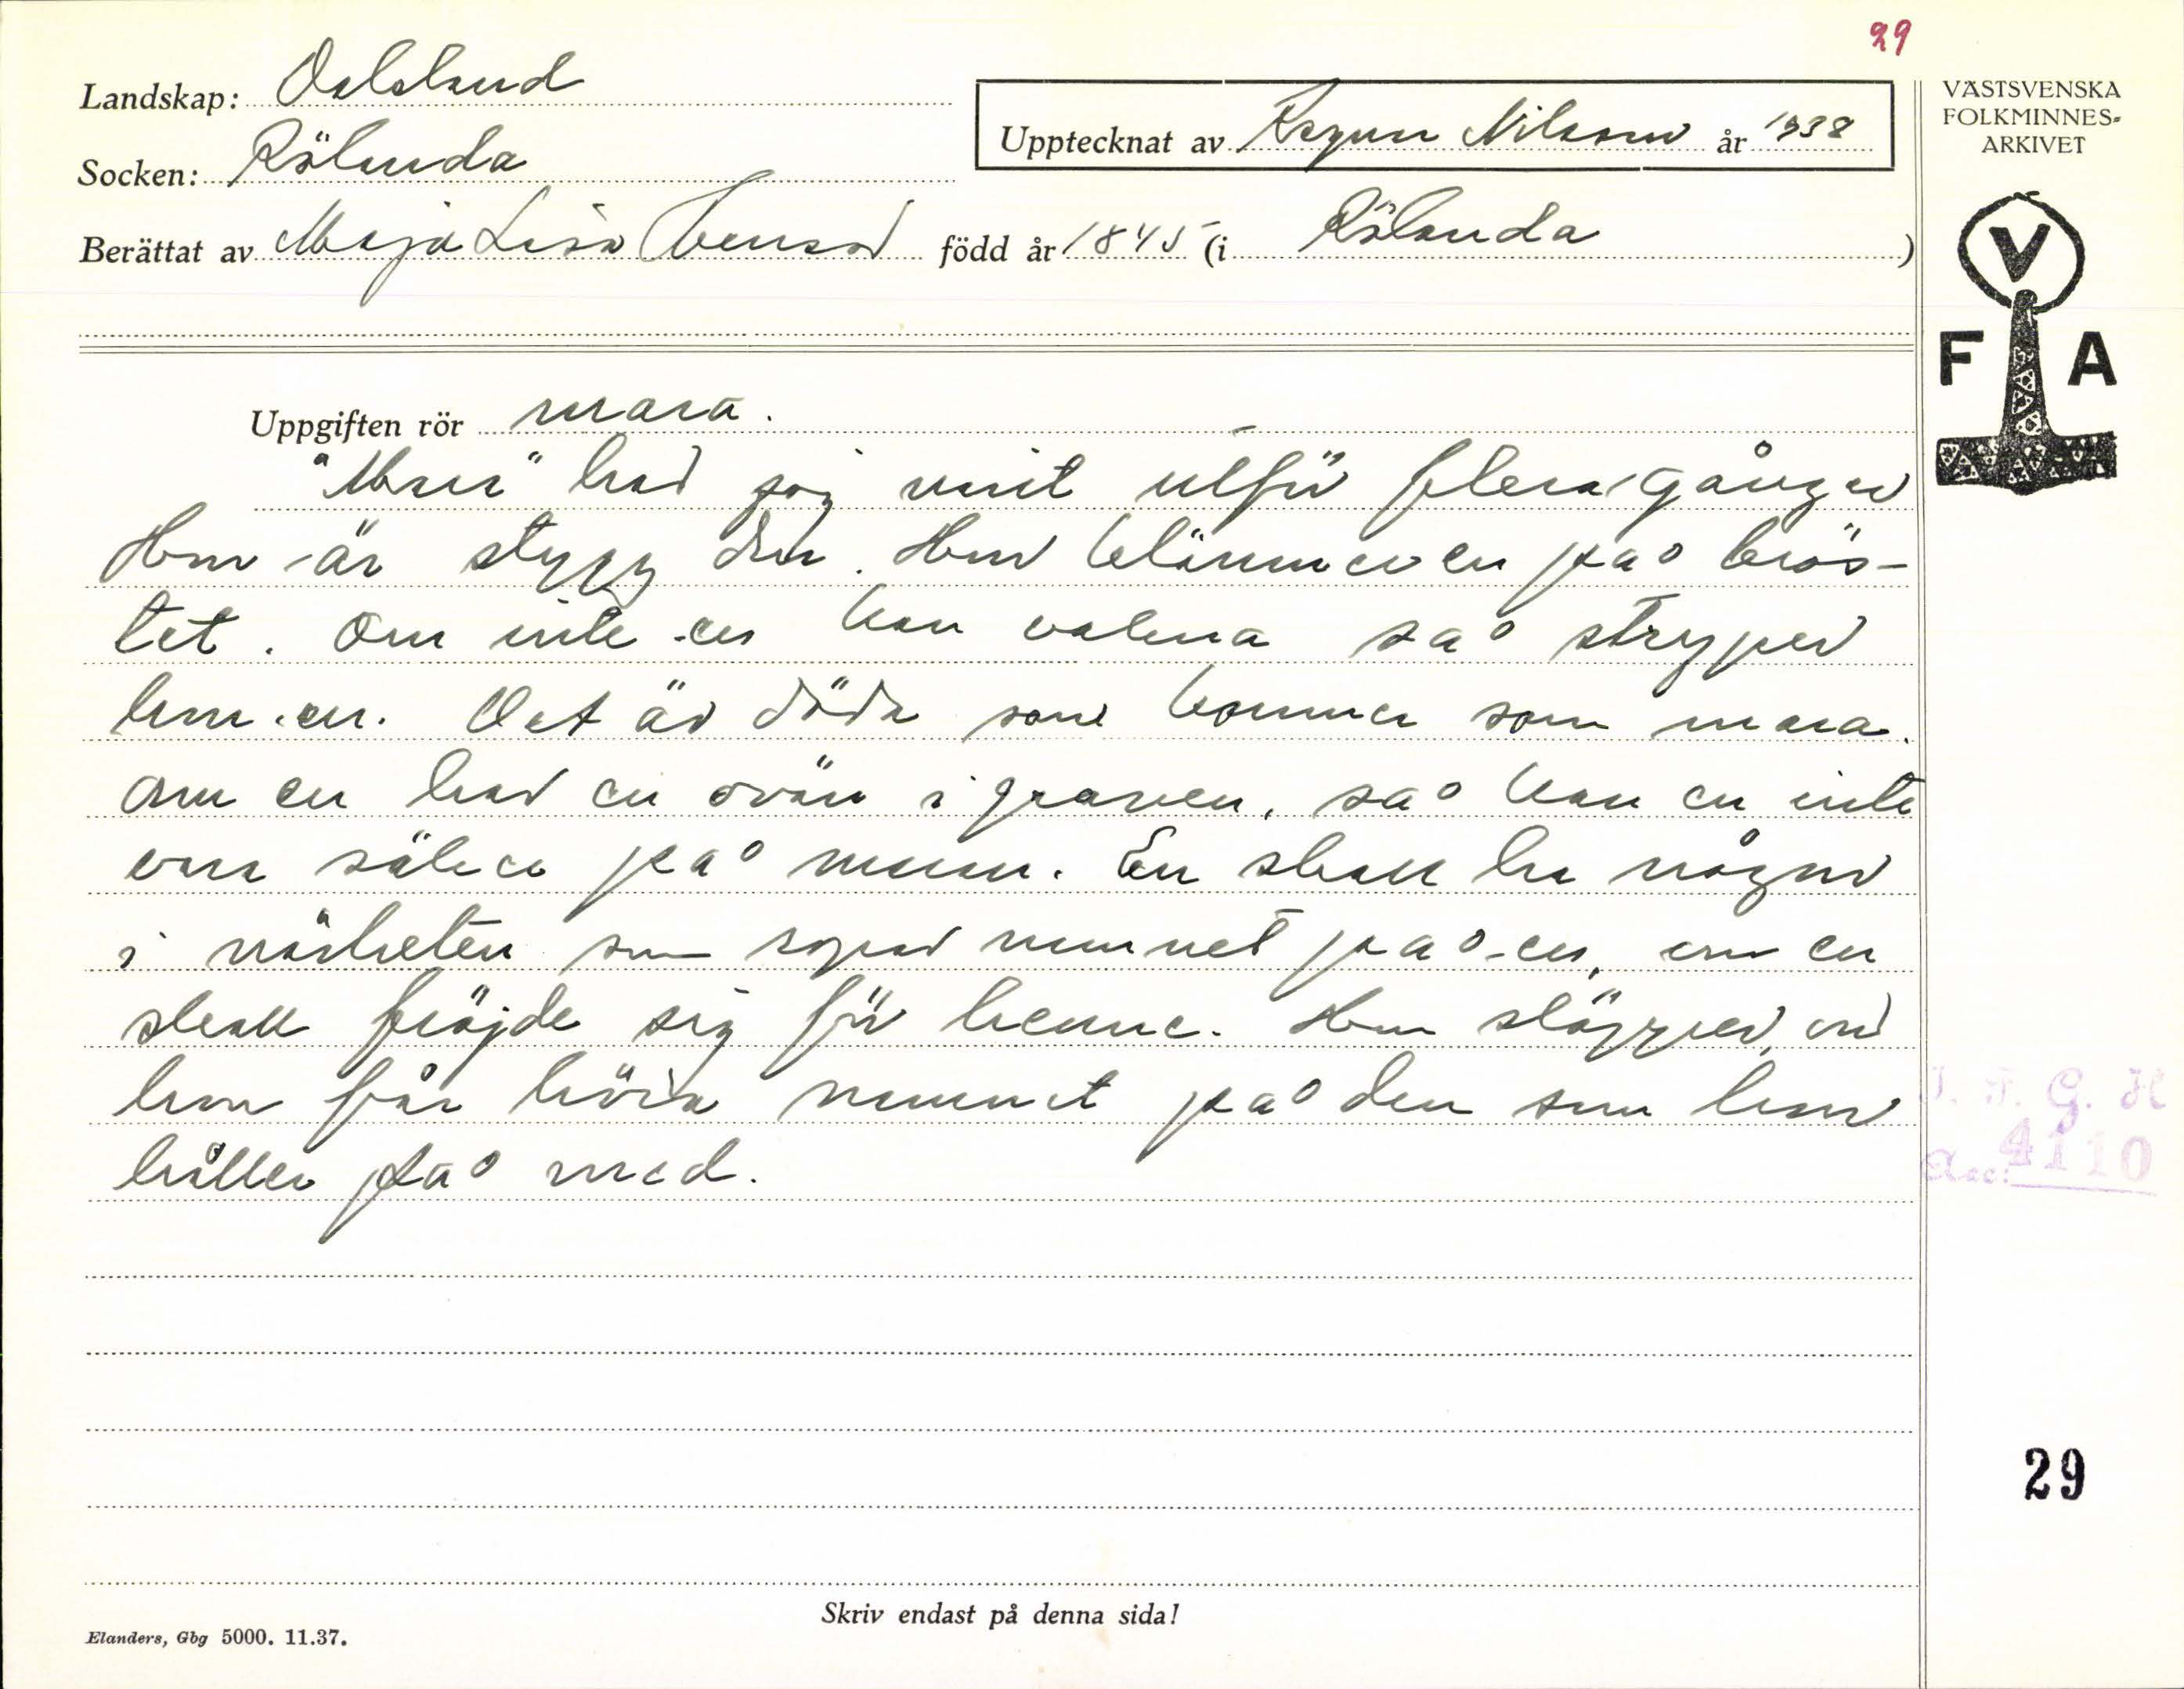 29
Landskap: Dalsland
Upptecknat av Ragnar Nilsson år 1938
Socken: Rölanda
Berättat av Maja Lisa född år 1845 (i Rölanda)
VÄSTSVENSKA
FOLKMINNES-
ARKIVET
V
F A
Uppgiften rör mara.
"Mara" har jag vart utför flera gånger
Hon är stygg den. Hon klämmer en på brös-
tet. Om inte en kan vakna så stryper
hon en. Det är döda som kommer som mara.
Om en har en ovän i graven, så kan en inte
vara säker på maran. En skall ha någon
i närheten som ropar namnet på en, om en
skall fröjde sig för henne. Hon släpper, om
hon får höra namnet på den som hon
håller på med.
I. F. G. H
Acc: 4110
29
Skriv endast på denna sida!
Elanders, Gbg 5000. 11.37.